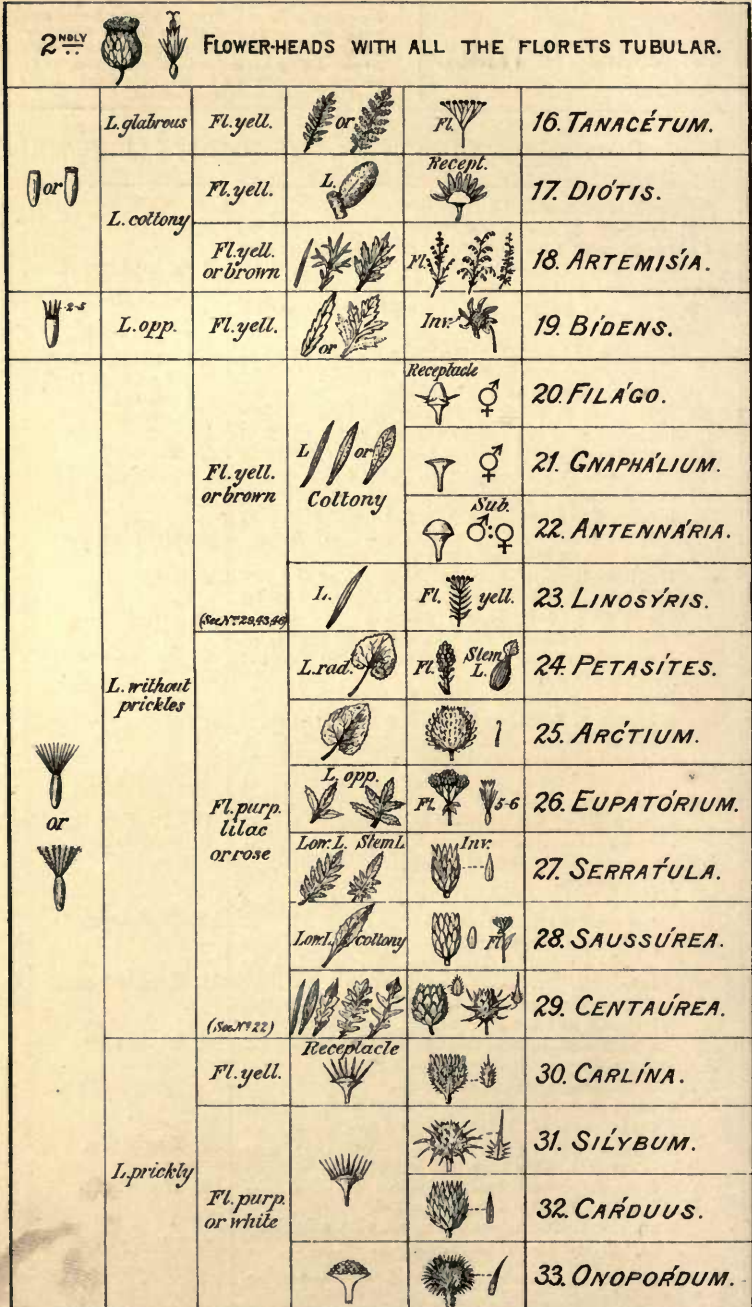 2NDLY FLOWER-HEADS WITH ALL THE FLORETS TUBULAR.
or
L. glabrous
Fl. yell.
or
Fl.
16. TANACÉTUM.
L. cottony
Fl. yell.
L.
Recept.
17. DIÓTIS.
Fl. yell.
or brown
Fl.
18. ARTEMISÍA.
2-5
L. opp.
Fl. yell.
or
Inv.
19. BÍDENS.
or
L. without
prickles
Fl. yell.
or brown
(See Nos. 29, 43, 46)
L
or
Cottony
Receptacle
♂♀
20. FILÁGO.
♂♀
21. GNAPHÁLIUM.
Sub.
♂:♀
22. ANTENNÁRIA.
L.
Fl. yell.
23. LINOSÝRIS.
Fl. purp.
lilac
or rose
(See No. 22)
L. rad.
Fl.
Stem
L.
24. PETASÍTES.
25. ARĆTIUM.
L. opp.
Fl.
5-6
26. EUPATÓRIUM.
Low. L. Stem L
Inv.
27. SERRATÚLA.
Low. L. cottony
Fl
28. SAUSSÚREA.
29. CENTAÚREA.
L. prickly
Fl. yell.
Receptacle
30. CARLÍNA.
Fl. purp.
or white
31. SILÝBUM.
32. CARĎUUS.
33. ONOPORĎUM.